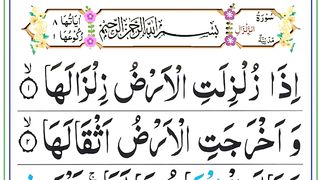 سُورَةُ الزِّلْزَال مَدَنِيَّةٌ
بِسْمِ اللّٰهِ الرَّحْمٰنِ الرَّحِيْمِ
اٰيَاتُهَا ٨ رُكُوْعُهَا ١
اِذَا زُلْزِلَتِ الْاَرْضُ زِلْزَالَهَا ١
وَ اَخْرَجَتِ الْاَرْضُ اَثْقَالَهَا ٢